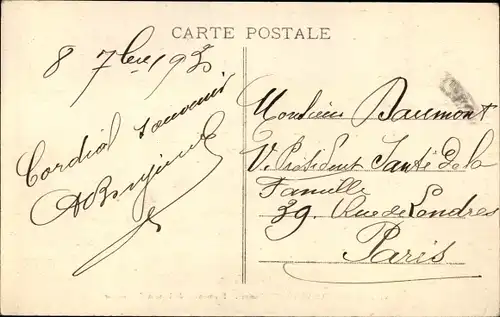 CARTE POSTALE
8 7bre 193
Cordial souvenir
Monsieur Baumont
V. Président Santé de la
Famille
39. Rue de Londres
Paris